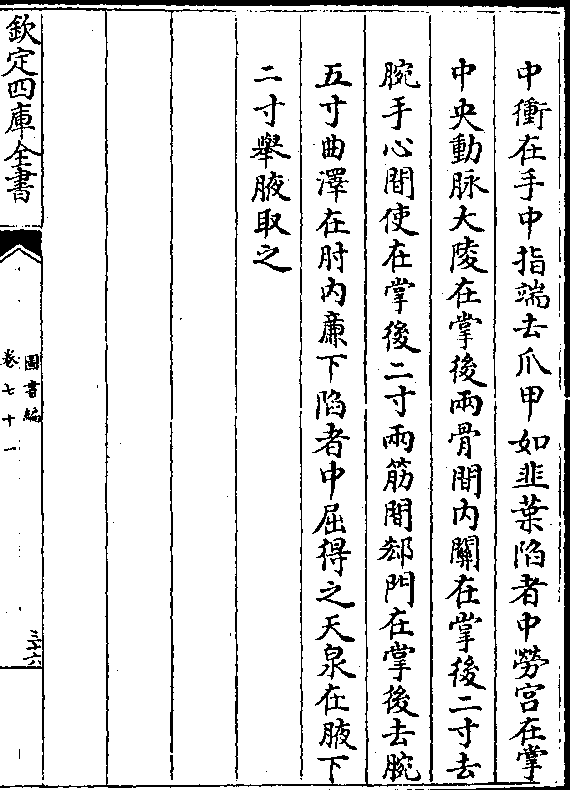 中衝在手中指端去爪甲如韭葉陷者中勞宫在掌
中央動脉大陵在掌後兩骨間内關在掌後二寸去
腕手心間使在掌後二寸兩筋間郄門在掌後去腕
五寸曲澤在肘内亷下陷者中屈得之天泉在腋下
二寸舉腋取之
欽定四庫全書
圖書編
卷七十一
三十六